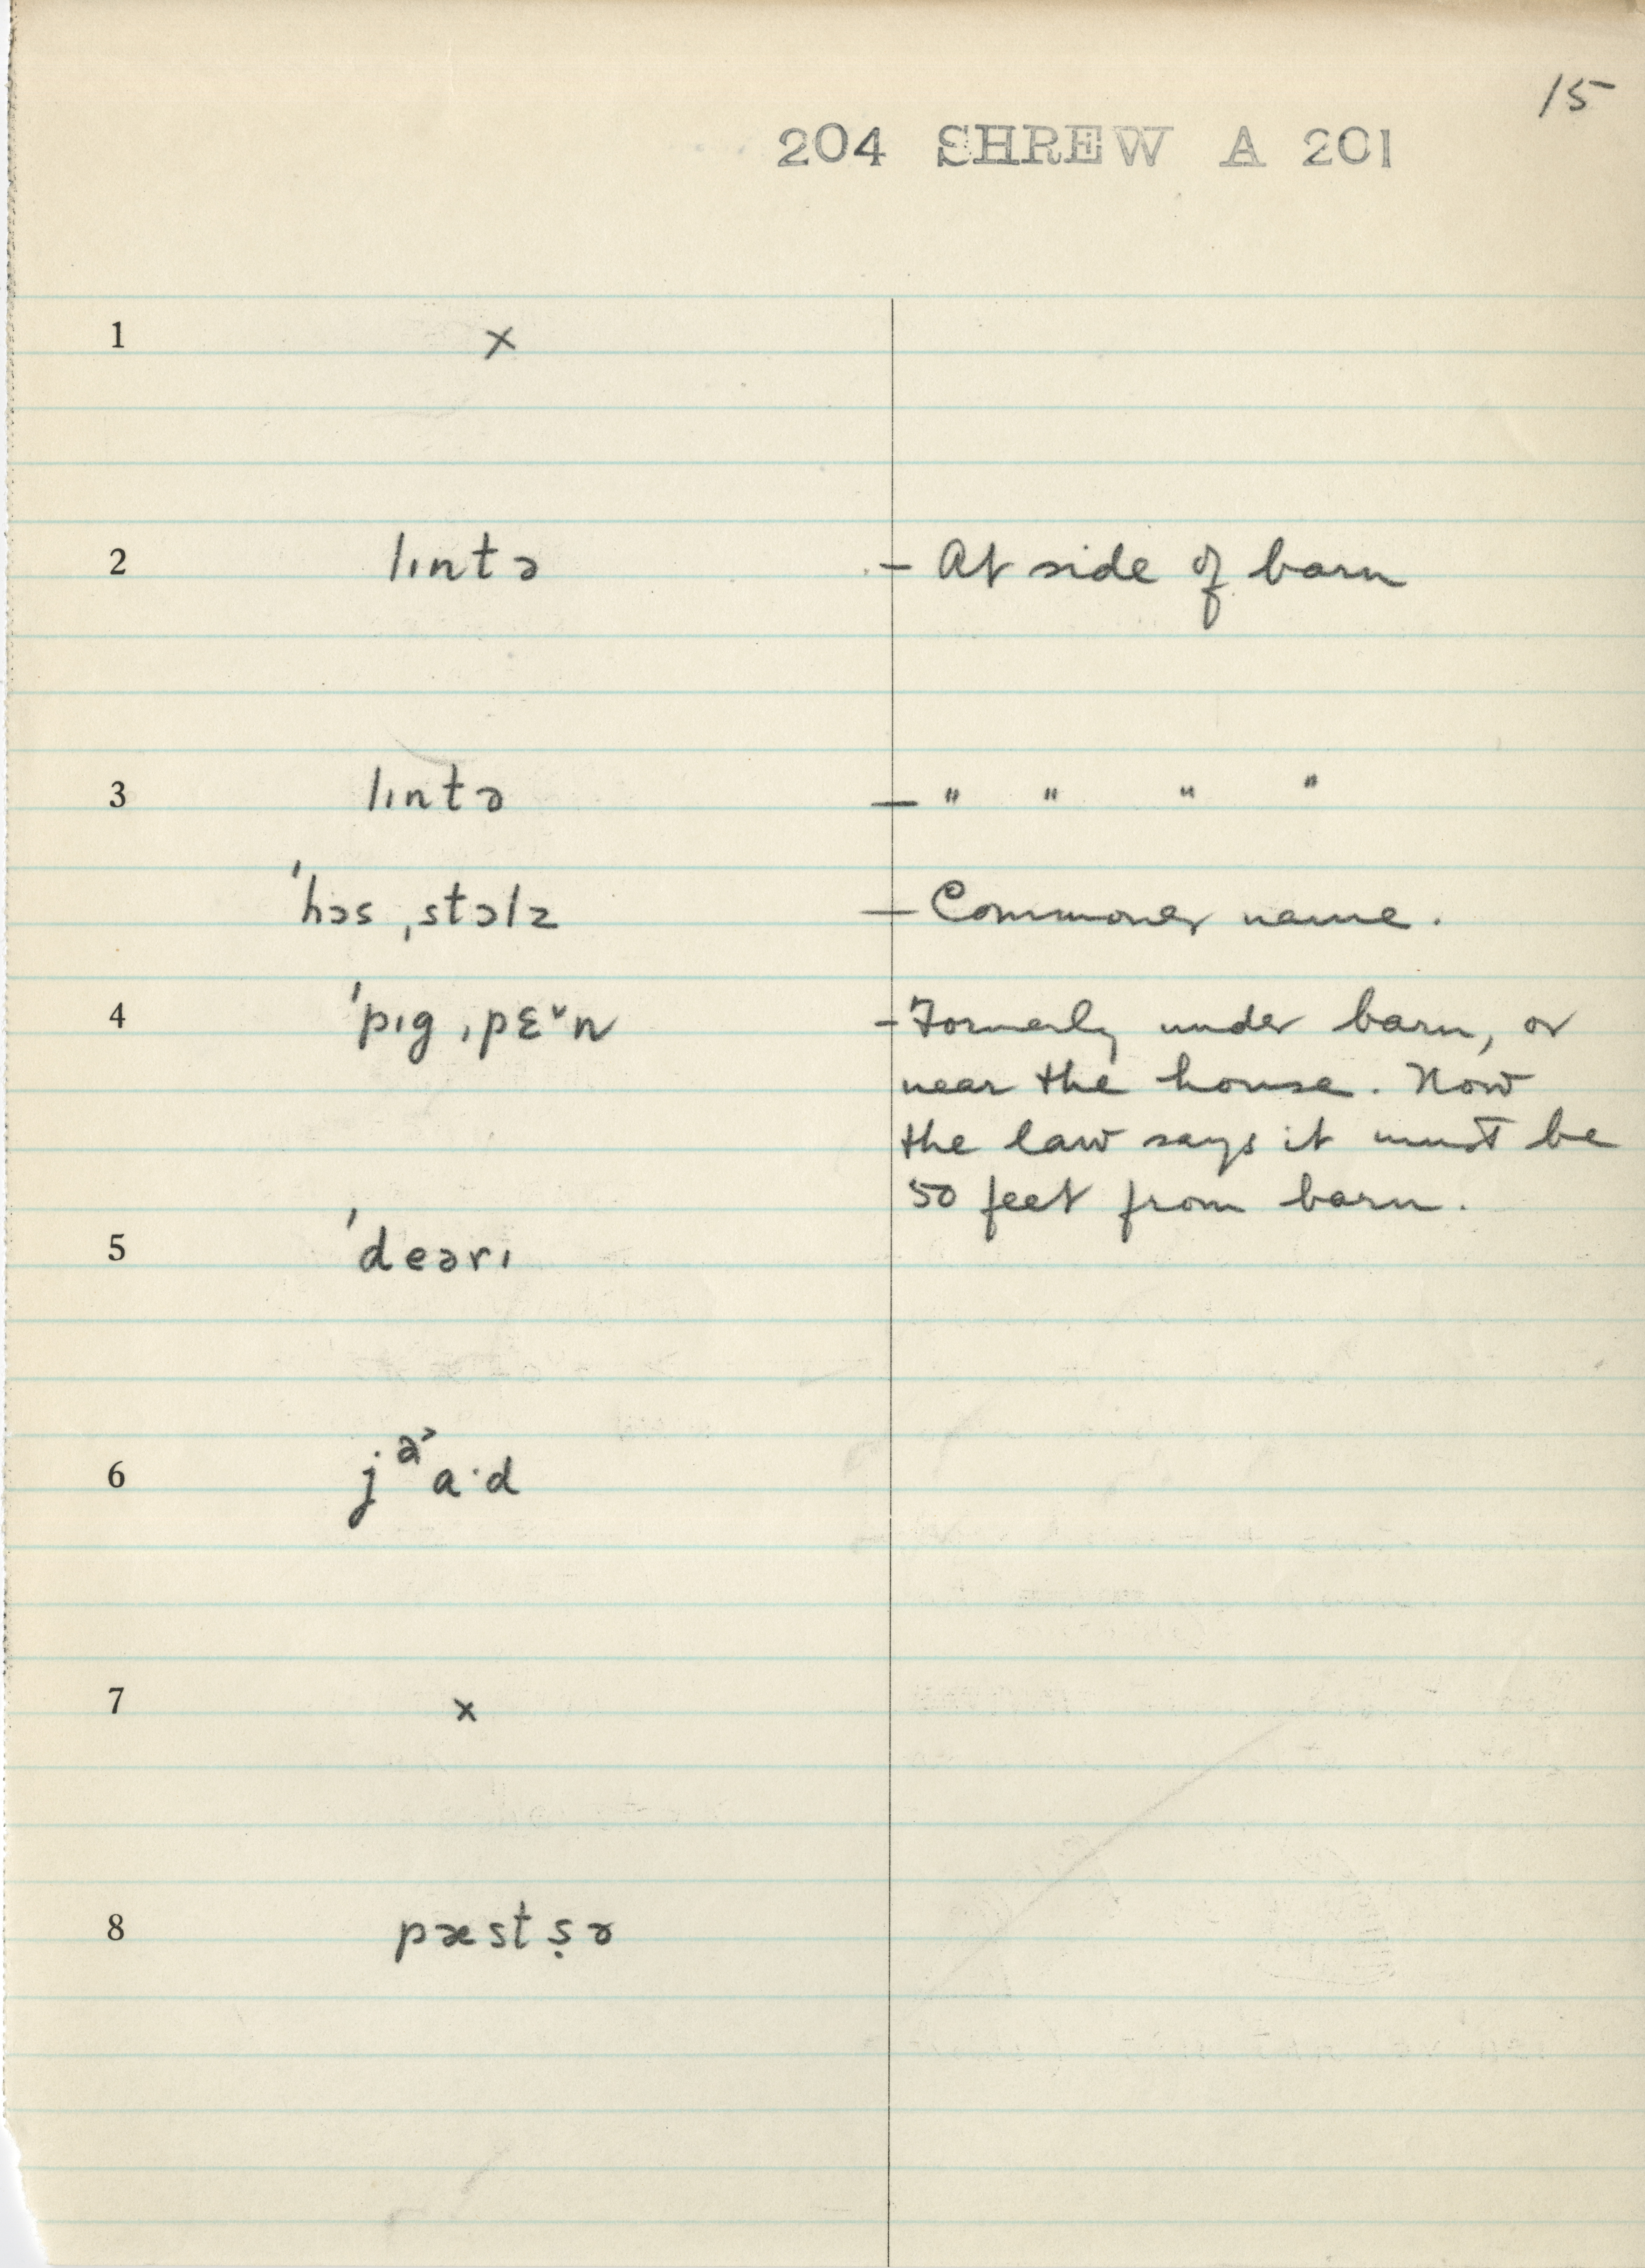 15
204 SHREW A 201
1 ×
2 lɪntə – At side of barn
3 lɪntə – " " " "
ˈhɔsˌstɔlz – Commoner name.
4 ˈpɪgˌpɛ˘n – Formerly under barn, or
near the house. Now
the law says it must be
50 feet from barn.
5 ˈdeərɪ
6 jᵊ˃a·d
7 ×
8 pæstṣə